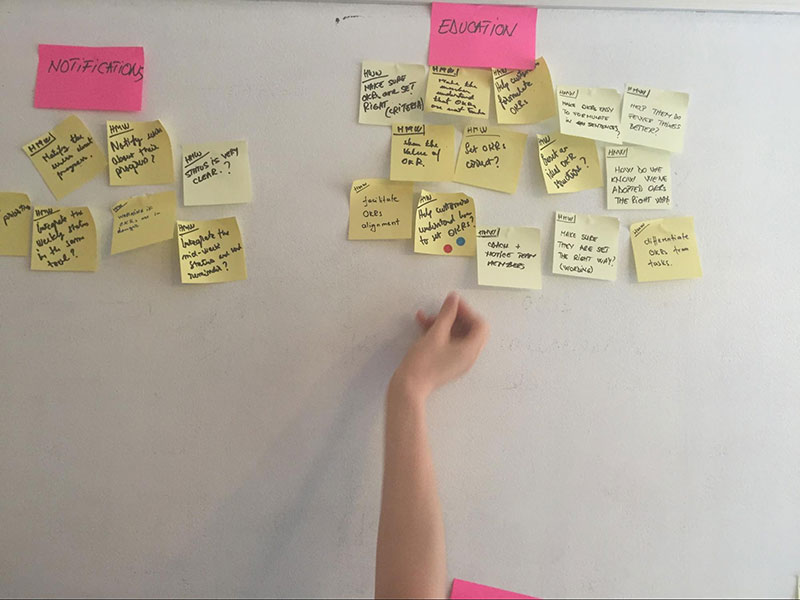 NOTIFICATIONS
HMW
Notify the
users about
progress.
HMW
Notify users
about their
progress?
HMW
STATUS IS VERY
CLEAR.?
HMW
Integrate the
weekly status
in the same
tool?
HMW
Integrate the
mid-week
status and
reminder?
EDUCATION
HMW
MAKE SURE
OKRs ARE SET
RIGHT
(CRITERIA)
HMW
Make the
understand
that OKRs
are not tasks
HMW
Help customers
formulate
OKRs
HMW
MAKE OKRs EASY
TO FORMULATE
IN SENTENCES?
HMW
HELP THEM DO
FEWER THINGS
BETTER?
HMW
the value of
OKR.
HMW
Set OKRs
correct?
HMW
OKR
structure?
HMW
HOW DO WE
KNOW WE'VE
ADOPTED OKRs
THE RIGHT WAY
HMW
facilitate
OKRs
alignment
HMW
Help customers
understand how
to set OKRs?
HMW
COACH +
NOTICE TEAM
MEMBERS
HMW
MAKE SURE
THEY ARE SET
THE RIGHT WAY?
(WORDING)
HMW
differentiate
OKRs from
tasks.